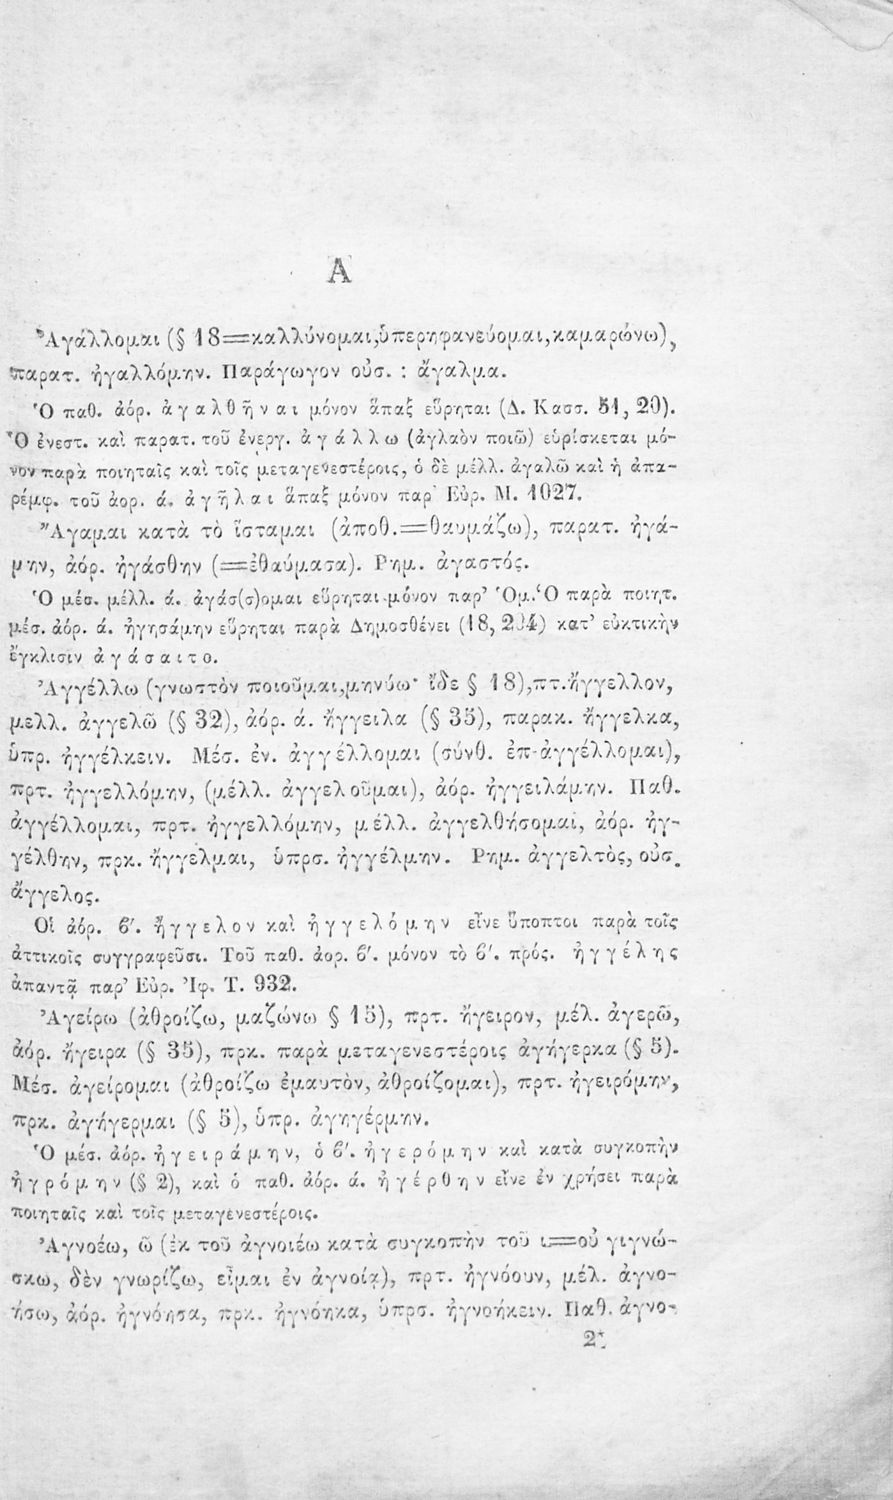 Α
Ἀγάλλομαι (§ 18=καλλύνομαι,ὑπερηφανεύομαι,καμαρώνω),
παρατ. ἠγαλλόμην. Παράγωγον οὐσ. : ἄγαλμα.
Ὁ παθ. ἀόρ. ἀγαλθῆναι μόνον ἅπαξ εὕρηται (Δ. Κασσ. 51, 20).
Ὁ ἐνεστ. καὶ παρατ. τοῦ ἐνεργ. ἀγάλλω (ἀγλαὸν ποιῶ) εὑρίσκεται μό-
νον παρὰ ποιηταῖς καὶ τοῖς μεταγενεστέροις, ὁ δὲ μέλλ. ἀγαλῶ καὶ ἡ ἀπα-
ρέμφ. τοῦ ἀορ. ά. ἀγῆλαι ἅπαξ μόνον παρ' Εὐρ. Μ. 1027.
Ἄγαμαι κατὰ τὸ ἵσταμαι (ἀποθ.=θαυμάζω), παρατ. ἠγά-
μην, ἀόρ. ἠγάσθην (=ἐθαύμασα). Ρημ. ἀγαστός.
Ὁ μέσ. μέλλ. ά. ἀγάσ(σ)ομαι εὕρηται μόνον παρ' Ὁμ. Ὁ παρὰ ποιητ.
μέσ. ἀόρ. ά. ἠγησάμην εὕρηται παρὰ Δημοσθένει (18, 204) κατ' εὐκτικὴν
ἔγκλισιν ἀγάσαιτο.
Ἀγγέλλω (γνωστὸν ποιοῦμαι,μηνύω· ἴδε § 18),πτ.ἤγγελλον,
μελλ. ἀγγελῶ (§ 32), ἀόρ. ά. ἤγγειλα (§ 35), παρακ. ἤγγελκα,
ὑπρ. ἠγγέλκειν. Μέσ. ἐν. ἀγγέλλομαι (σύνθ. ἐπ-αγγέλλομαι),
πρτ. ἠγγελλόμην, (μέλλ. ἀγγελοῦμαι), ἀόρ. ἠγγειλάμην. Παθ.
ἀγγέλλομαι, πρτ. ἠγγελλόμην, μέλλ. ἀγγελθήσομαι, ἀόρ. ἠγ-
γέλθην, πρκ. ἤγγελμαι, ὑπρσ. ἠγγέλμην. Ρημ. ἀγγελτὸς, οὐσ.
ἄγγελος.
Οἱ ἀόρ. β'. ἤγγελον καὶ ἠγγελόμην εἶνε ὕποπτοι παρὰ τοῖς
ἀττικοῖς συγγραφεῦσι. Τοῦ παθ. ἀορ. β'. μόνον τὸ β'. πρός. ἠγγέλης
ἀπαντᾷ παρ' Εὐρ. Ἰφ. Τ. 932.
Ἀγείρω (ἀθροίζω, μαζώνω § 15), πρτ. ἤγειρον, μέλ. ἀγερῶ,
ἀόρ. ἤγειρα (§ 35), πρκ. παρὰ μεταγενεστέροις ἀγήγερκα (§ 5).
Μέσ. ἀγείρομαι (ἀθροίζω ἐμαυτὸν, ἀθροίζομαι), πρτ. ἠγειρόμην,
πρκ. ἀγήγερμαι (§ 5), ὑπρ. ἀγηγέρμην.
Ὁ μέσ. ἀόρ. ἠγειράμην, ὁ β'. ἠγερόμην καὶ κατὰ συγκοπὴν
ἠγρόμην (§ 2), καὶ ὁ παθ. ἀόρ. ά. ἠγέρθην εἶνε ἐν χρήσει παρὰ
ποιηταῖς καὶ τοῖς μεταγενεστέροις.
Ἀγνοέω, ῶ (ἐκ τοῦ ἀγνοιέω κατὰ συγκοπὴν τοῦ ι=οὐ γιγνώ-
σκω, δὲν γνωρίζω, εἶμαι ἐν ἀγνοίᾳ), πρτ. ἠγνόουν, μέλ. ἀγνο-
ήσω, ἀόρ. ἠγνόησα, πρκ. ἠγνόηκα, ὑπρσ. ἠγνοήκειν. Παθ. ἀγνο-
2*